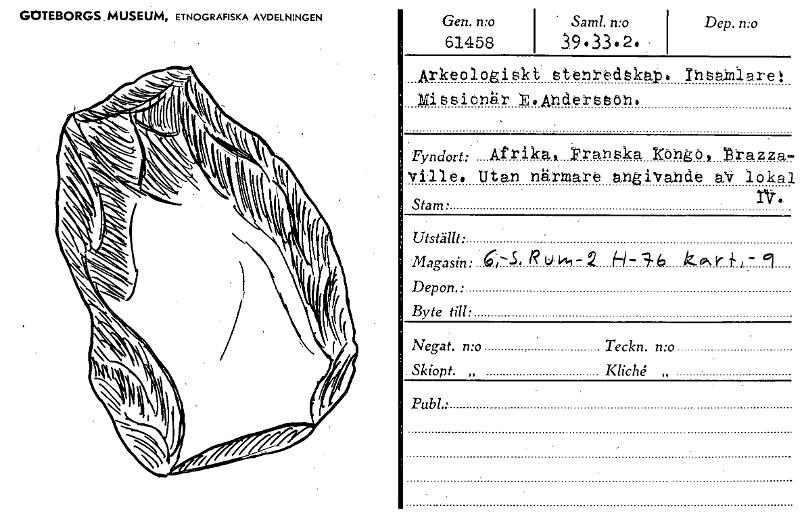 GÖTEBORGS MUSEUM, ETNOGRAFISKA AVDELNINGEN
Gen. n:o Saml. n:o Dep. n:o
61458 39.33.2.
Arkeologiskt stenredskap. Insamlare:
Missionär E.Andersson.
Fyndort: Afrika, Franska Kongo, Brazza-
ville. Utan närmare angivande av lokal
IV.
Stam:
Utställt:
Magasin: 6,-S. Rum-2 H-76 kart,-9
Depon.:
Byte till:
Negat. n:o Teckn. n:o
Skiopt. „ Kliché „
Publ.: